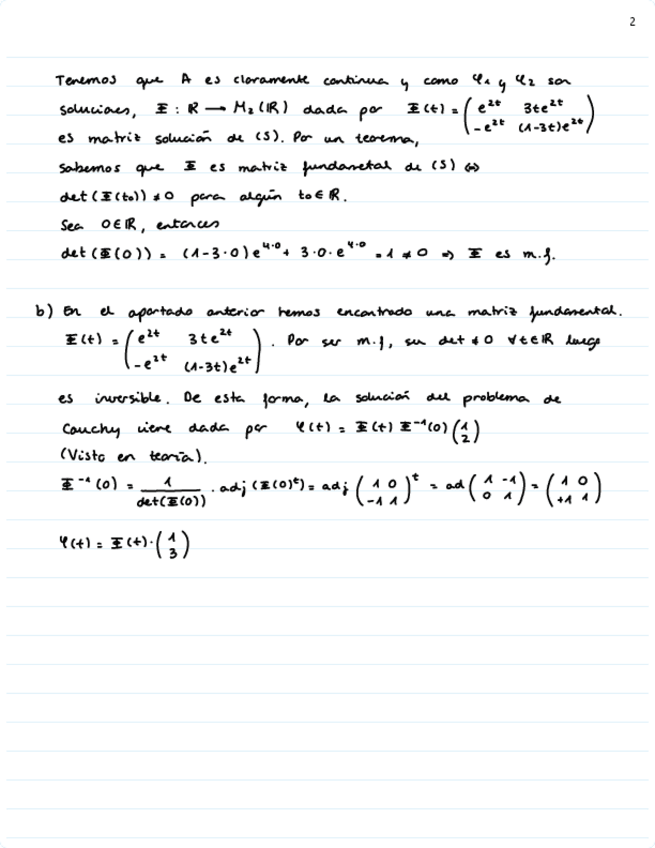 2
Tenemos que A es claramente continua y como φ₁ y φ₂ son
soluciones, Φ : ℝ → M₂(ℝ) dada por Φ(t) = ( e^{2t}  3te^{2t} ; -e^{2t}  (1-3t)e^{2t} )
es matriz solución de (S). Por un teorema,
sabemos que Φ es matriz fundametal de (S) ⇔
det(Φ(t₀)) ≠ 0 para algún t₀ ∈ ℝ.
Sea 0 ∈ ℝ, entonces
det(Φ(0)) = (1-3·0)e^{4·0} + 3·0·e^{4·0} = 1 ≠ 0 ⇒ Φ es m.f.
b) En el apartado anterior hemos encontrado una matriz fundamental.
Φ(t) = ( e^{2t}  3te^{2t} ; -e^{2t}  (1-3t)e^{2t} ) . Por ser m.f, su det ≠ 0 ∀t∈ℝ luego
es inversible. De esta forma, la solución del problema de
Cauchy viene dada por φ(t) = Φ(t) Φ^{-1}(0) ( 1 ; 2 )
(Visto en teoría).
Φ^{-1}(0) = 1/det(Φ(0)) · adj(Φ(0)^t) = adj ( 1 0 ; -1 1 )^t = ad ( 1 -1 ; 0 1 ) = ( 1 0 ; +1 1 )
φ(t) = Φ(t) · ( 1 ; 3 )